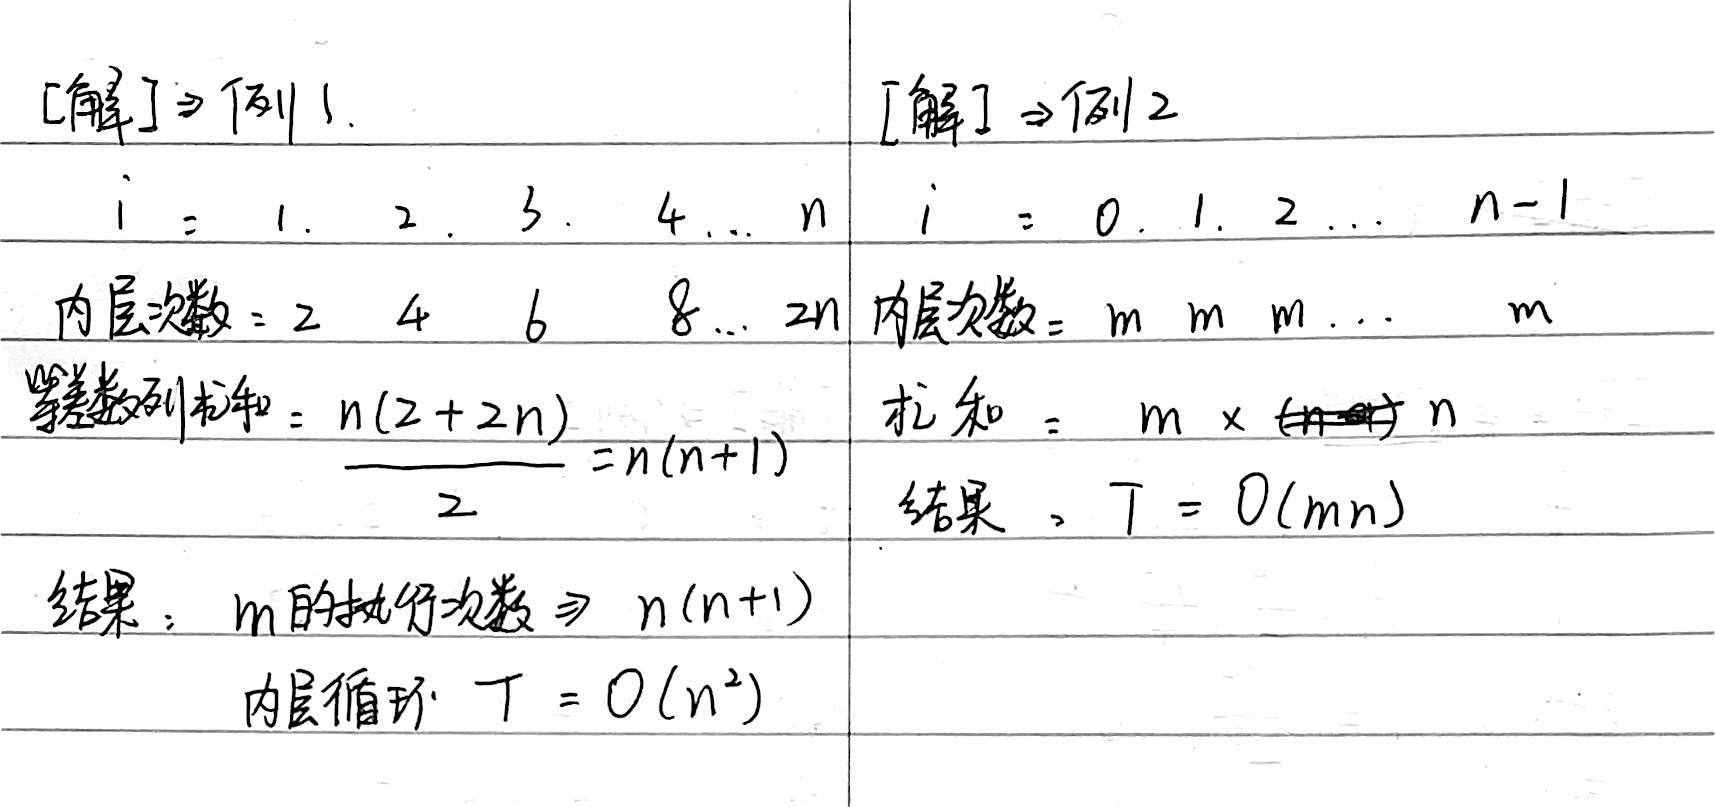 [解]⇒例1.
i : 1. 2. 3. 4... n
内层次数: 2 4 6 8... 2n
等差数列求和: n(2+2n)
2
=n(n+1)
结果: m的执行次数⇒ n(n+1)
内层循环 T = O(n²)
[解]⇒例2
i : 0. 1. 2... n-1
内层次数= m m m... m
求和 : m × n
结果: T = O(mn)